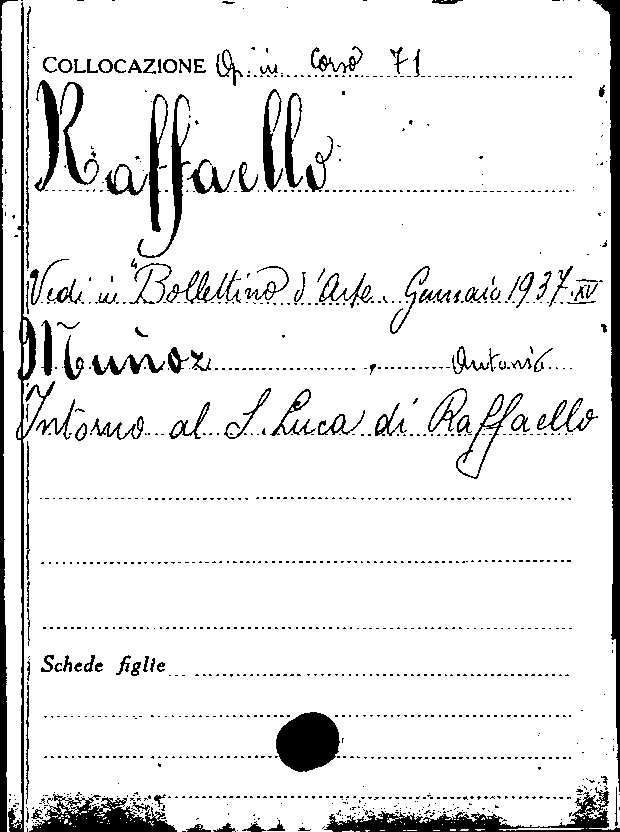 COLLOCAZIONE Op. in Corso 71
Raffaello
Vedi in "Bollettino d'Arte. Gennaio 1937.XV
Muñoz, Antonio
Intorno al S. Luca di Raffaello
Schede figlie